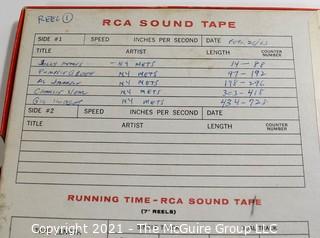 REEL 1
RCA SOUND TAPE
SIDE #1 SPEED INCHES PER SECOND Feb. 26/63
TITLE ARTIST LENGTH COUNTER NUMBER
NY METS 14 - 88
NY METS 97 - 192
AL NY METS 198 - 296
CHARLIE NEAL NY METS - 418
GIL HODGES NY METS 434 - 728
SIDE #2 SPEED INCHES PER SECOND
TITLE ARTIST LENGTH COUNTER NUMBER
RUNNING TIME - RCA SOUND TAPE
(7" REELS)
Copyright © 2021 - The McGuire Group, LLC